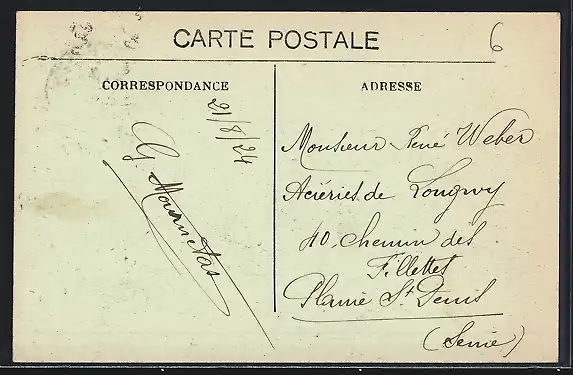 6
CARTE POSTALE
CORRESPONDANCE
ADRESSE
21/8/24
Monsieur René Weber
Aciéries de Longwy
40 Chemin des
Fillettes
Plaine St Denis
(Seine)